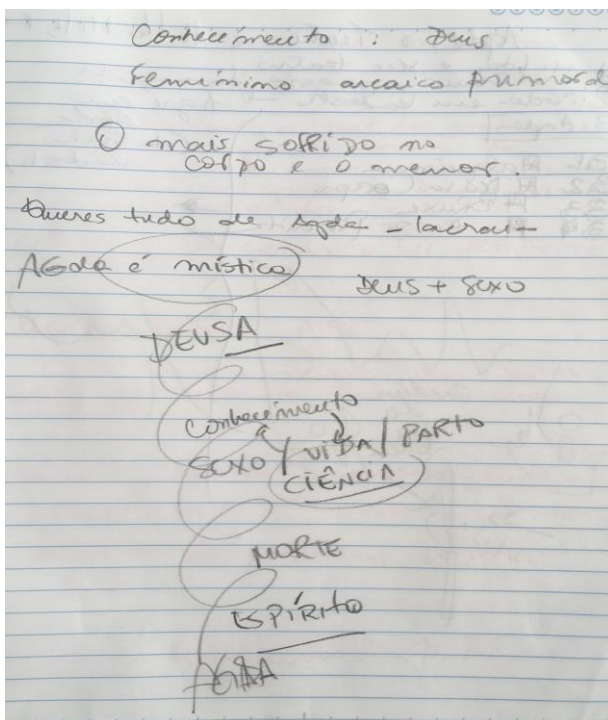 Conhecimento : Deus
Feminino arcaico primord
O mais sofrido no
corpo e o menor.
Queres tudo de Agda - lacrau -
AGda é mística
Deus + sexo
DEUSA
Conhecimento
SEXO / VIDA / PARTO
CIÊNCIA
MORTE
ESPÍRITO
AGDA